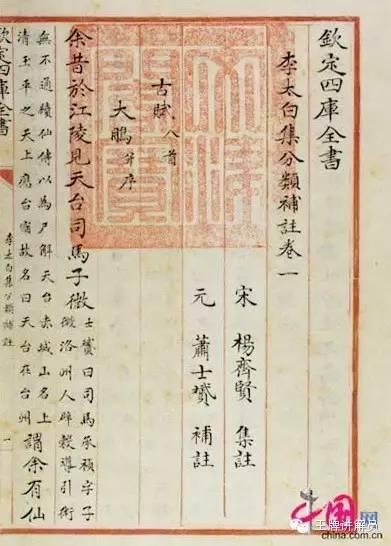 欽定四庫全書
李太白集分類補註卷一
宋 楊齊賢 集註
元 蕭士贇 補註
古賦八首
大鵬并序
余昔於江陵見天台司馬子微士贇曰司馬承禎字子
微洛州人辟穀導引術
無不通續仙傳以為尸解天台赤城山名上
清玉平之天上應台宿故名曰天台在台州
謂余有仙
欽定四庫全書
李太白集分類補註
一
中国网
china.com.cn
王牌讲解员